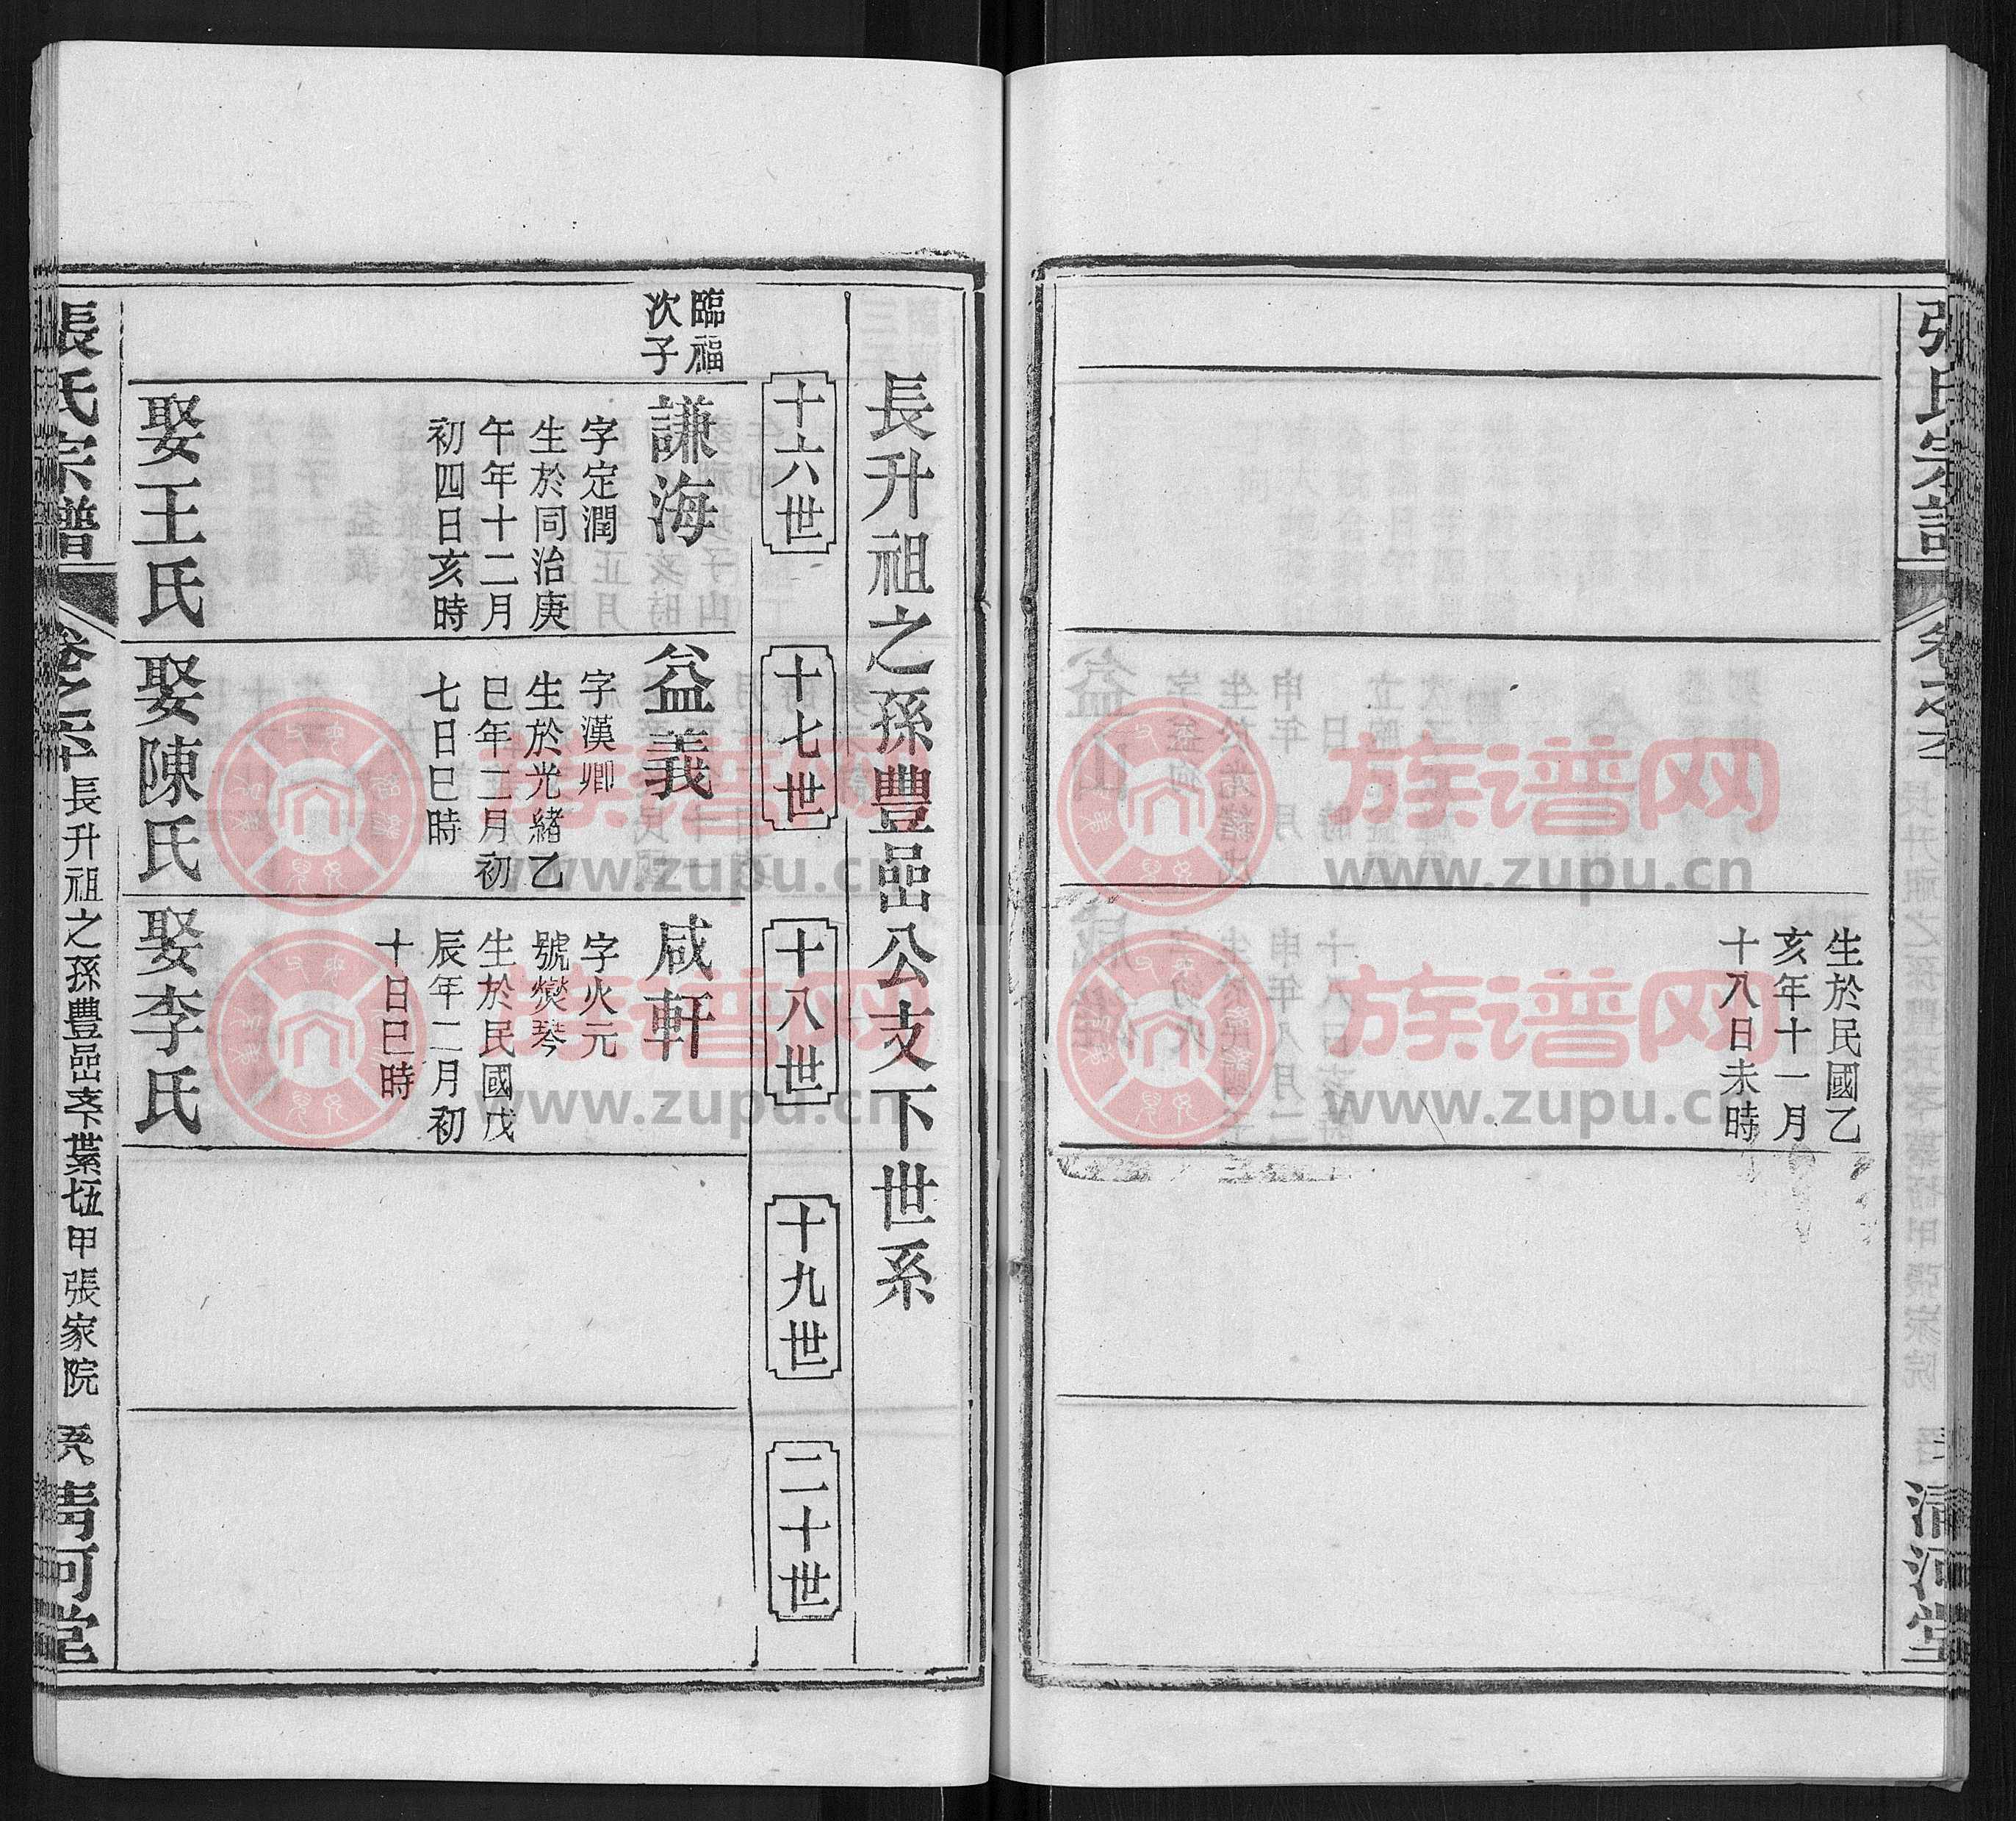 張氏宗譜
卷之六
清河堂
生於民國乙
亥年十一月
十八日未時
長升祖之孫豐嵒公支下世系
十六世
十七世
十八世
十九世
二十世
臨福
次子
謙海
字定潤
生於同治庚
午年十二月
初四日亥時
娶王氏
益義
字漢卿
生於光緒乙
巳年二月初
七日巳時
娶陳氏
咸軒
字火元
號爕琴
生於民國戊
辰年二月初
十日巳時
娶李氏
張氏宗譜
長升祖之孫豐嵒支下 甲張家院
清河堂
族谱网
www.zupu.cn
族谱网
www.zupu.cn
族谱网
www.zupu.cn
族谱网
www.zupu.cn